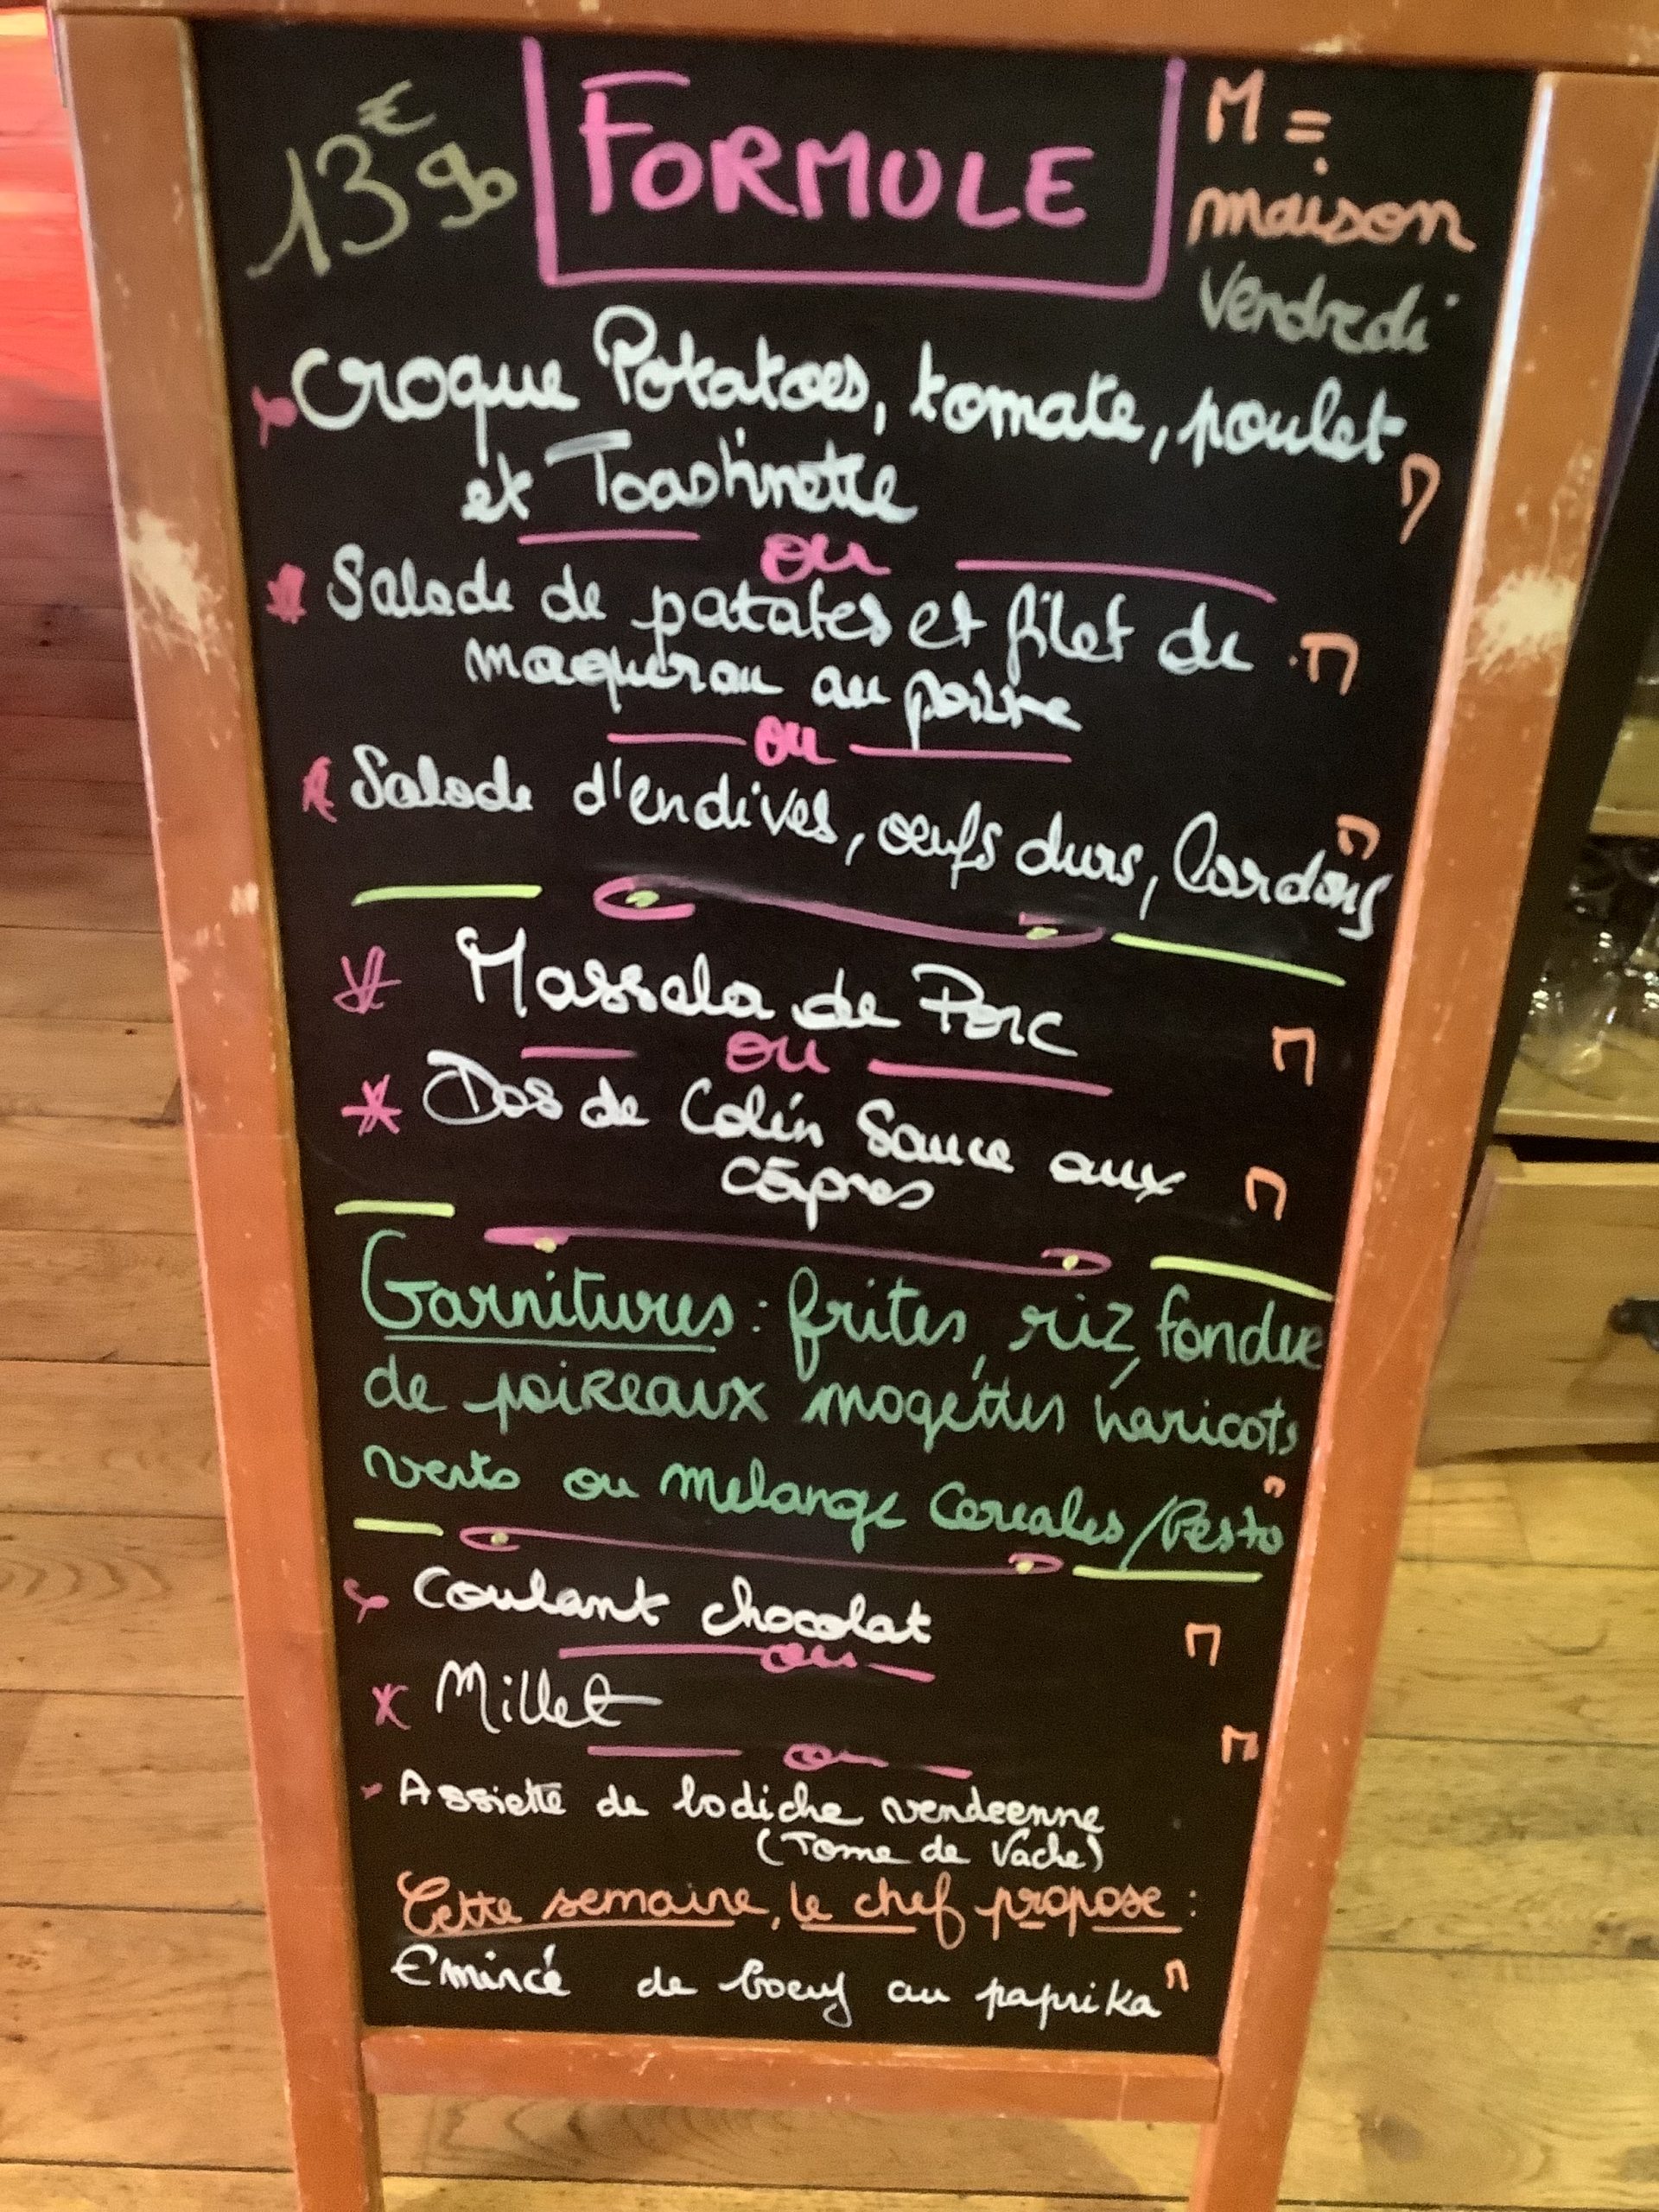 13€90 FORMULE M =
maison
Vendredi
Croque Potatoes, tomate, poulet
et Toastinette M
ou
Salade de patates et filet de M
maquereau au poivre
ou
Salade d'endives, œufs durs, lardons M
Massala de Porc M
ou
Dos de Colin Sauce aux M
câpres
Garnitures : frites, riz, fondue
de poireaux mogettes haricots
verts ou melange Cereales/Pesto M
Coulant chocolat M
ou
Millet M
ou
Assiette de lodiche vendeenne
(Tome de Vache)
Cette semaine, le chef propose :
Emincé de boeuf au paprika M